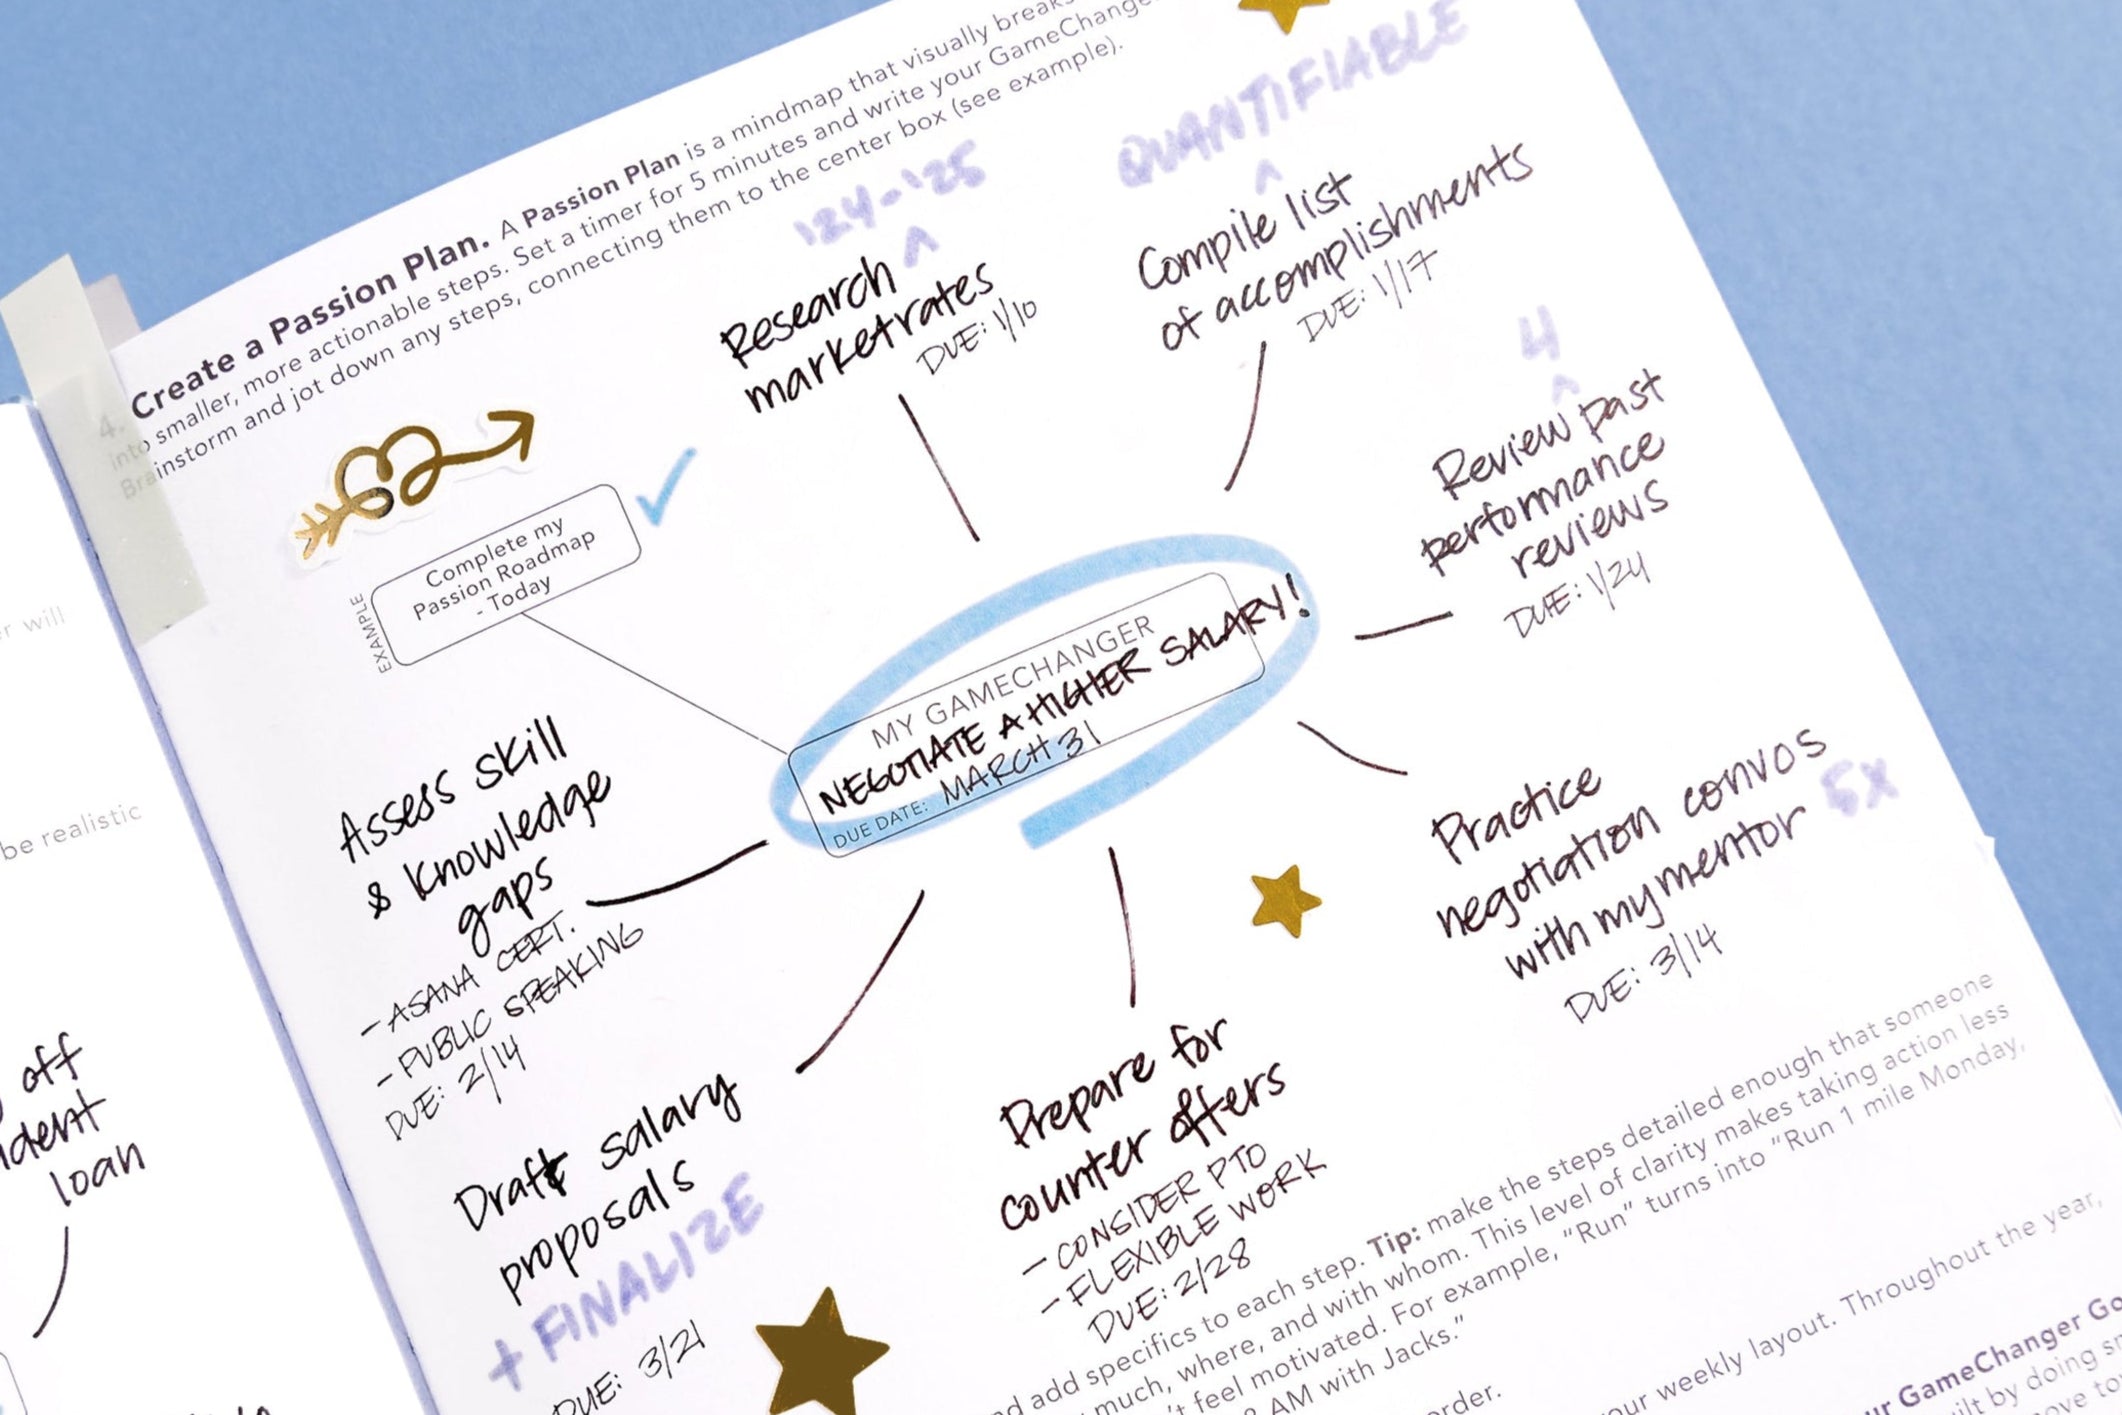 4. Create a Passion Plan. A Passion Plan is a mindmap that visually breaks
into smaller, more actionable steps. Set a timer for 5 minutes and write your GameChange
Brainstorm and jot down any steps, connecting them to the center box (see example).
'24-'25
^
Research
market rates
DUE: 1/10
QUANTIFIABLE
^
Compile list
of accomplishments
DUE: 1/17
4
^
Review past
performance
reviews
DUE: 1/24
EXAMPLE
Complete my
Passion Roadmap
- Today
MY GAMECHANGER
NEGOTIATE A HIGHER SALARY!
DUE DATE: MARCH 31
Practice
negotiation convos
with my mentor 5x
DUE: 3/14
Assess skill
& knowledge
gaps
- ASANA CERT.
- PUBLIC SPEAKING
DUE: 2/14
Draft salary
proposals
+ FINALIZE
DUE: 3/21
Prepare for
counter offers
- CONSIDER PTO
- FLEXIBLE WORK
DUE: 2/28
add specifics to each step. Tip: make the steps detailed enough that someone
much, where, and with whom. This level of clarity makes taking action less
't feel motivated. For example, "Run" turns into "Run 1 mile Monday,
AM with Jacks."
order.
our weekly layout. Throughout the year,
ur GameChanger Go
ilt by doing sm
ove to
r will
be realistic
off
udent
loan